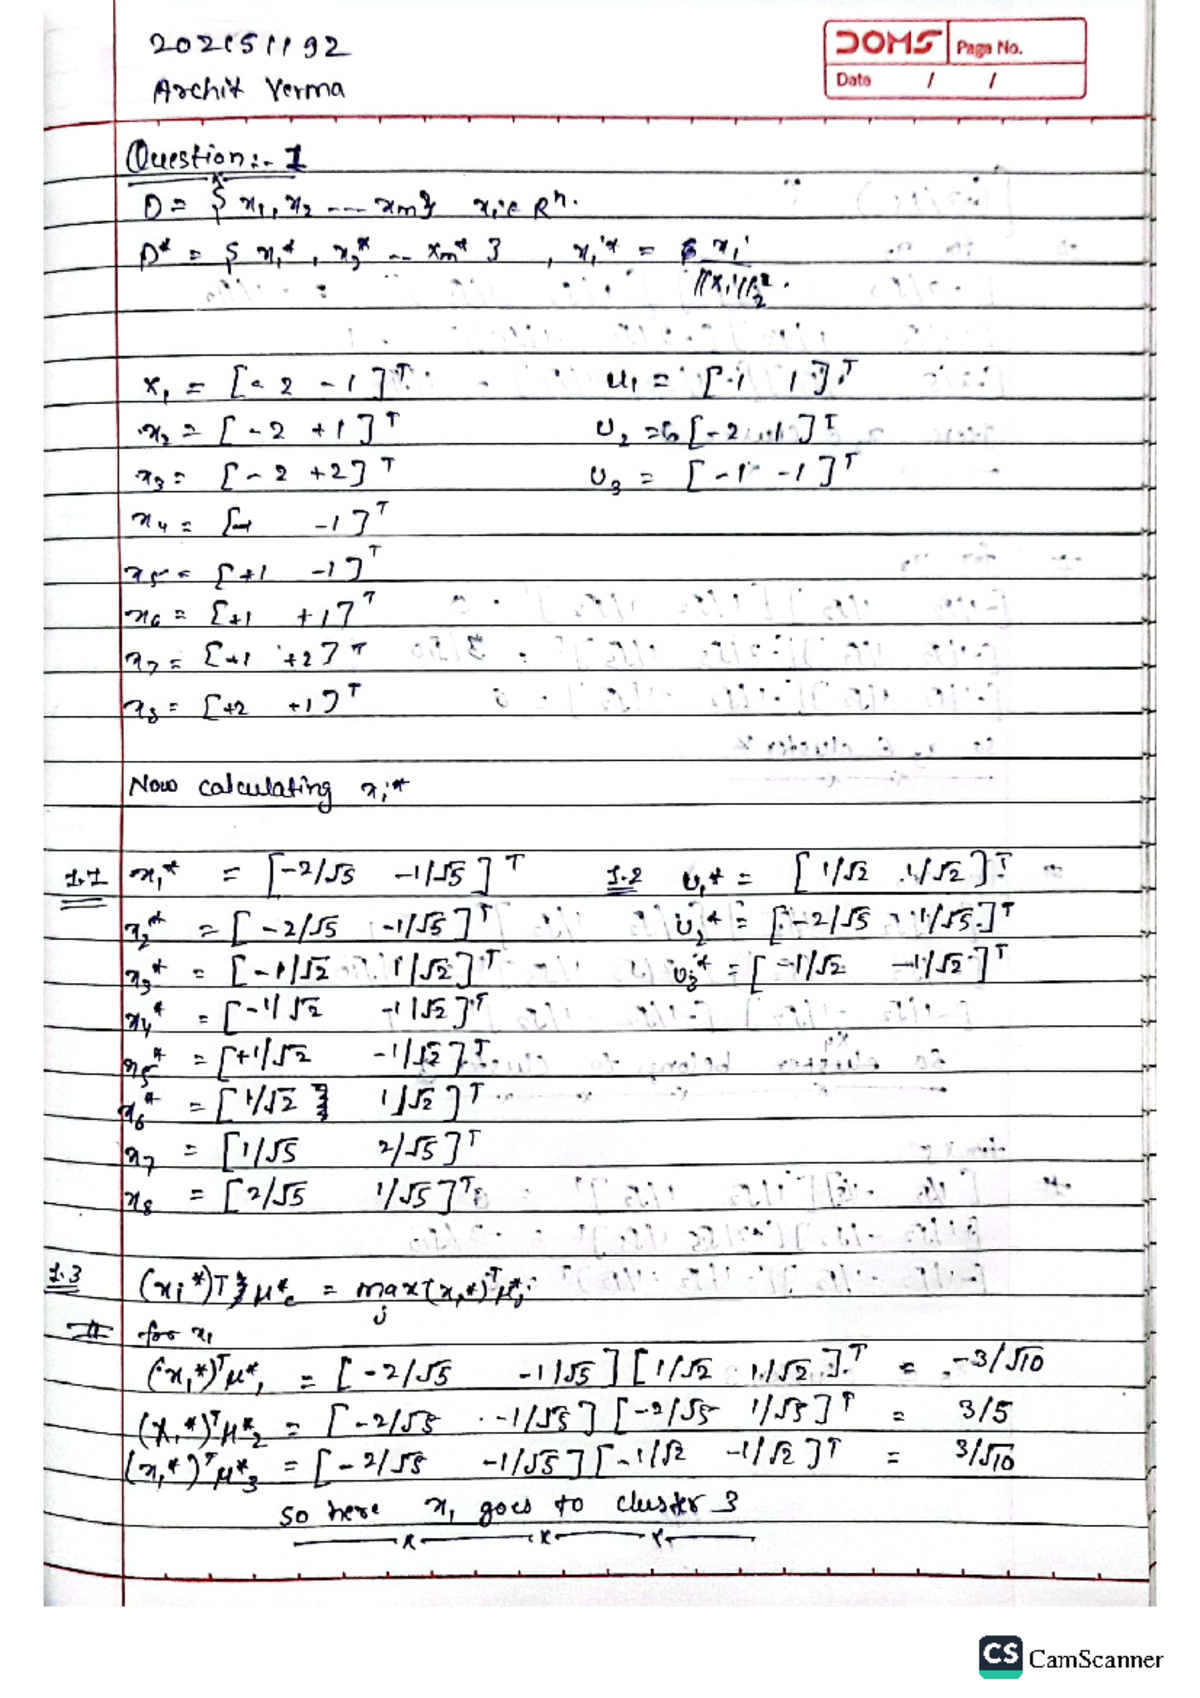 202151192
Archit Verma
DOMS Page No.
Date / /
Question:- 1
D = { x₁, x₂ --- xm} xᵢ ∈ Rⁿ.
D* = { x₁*, x₂* -- xm* } , xᵢ* = xᵢ / ||xᵢ||₂ .
x₁ = [- 2 - 1 ]ᵀ u₁ = [ 1 1 ]ᵀ
x₂ = [ - 2 + 1 ]ᵀ u₂ = [- 2 1 ]ᵀ
x₃ = [ - 2 + 2 ]ᵀ u₃ = [ - 1 - 1 ]ᵀ
x₄ = [-1 -1 ]ᵀ
x₅ = [ +1 -1 ]ᵀ
x₆ = [ +1 +1 ]ᵀ
x₇ = [ +1 +2 ]ᵀ
x₈ = [ +2 +1 ]ᵀ
Now calculating xᵢ*
1.1 x₁* = [ -2/√5 -1/√5 ]ᵀ 1.2 u₁* = [ 1/√2 1/√2 ]ᵀ
x₂* = [ -2/√5 -1/√5 ]ᵀ u₂* = [ -2/√5 1/√5 ]ᵀ
x₃* = [ -1/√2 1/√2 ]ᵀ u₃* = [ -1/√2 -1/√2 ]ᵀ
x₄* = [ -1/√2 -1/√2 ]ᵀ
x₅* = [ +1/√2 -1/√2 ]ᵀ
x₆* = [ 1/√2 1/√2 ]ᵀ
x₇ = [ 1/√5 2/√5 ]ᵀ
x₈ = [ 2/√5 1/√5 ]ᵀ
1.3 (xᵢ*)ᵀ μ*c = max j (xᵢ*)ᵀ μ*j
for x₁
(x₁*)ᵀ μ*₁ = [ -2/√5 -1/√5 ] [ 1/√2 1/√2 ]ᵀ = -3/√10
(x₁*)ᵀ μ*₂ = [ -2/√5 -1/√5 ] [ -2/√5 1/√5 ]ᵀ = 3/5
(x₁*)ᵀ μ*₃ = [ -2/√5 -1/√5 ] [ -1/√2 -1/√2 ]ᵀ = 3/√10
so here x₁ goes to cluster 3
CS CamScanner